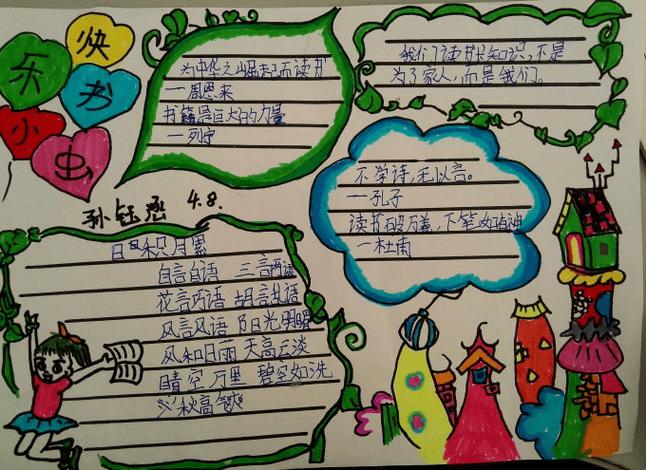 快
乐
书
小
虫
为中华之崛起而读书
一周恩来
书籍是巨大的力量
一列宁
我们读书长知识,不是
为了家人,而是我们。
不学诗,无以言。
一孔子
读书破万卷,下笔如有神
一杜甫
孙钰 4.8.
日积月累
自言自语 三言两语
花言巧语 胡言乱语
风言风语 阳光明媚
风和日丽 天高云淡
晴空万里 碧空如洗
秋高气爽